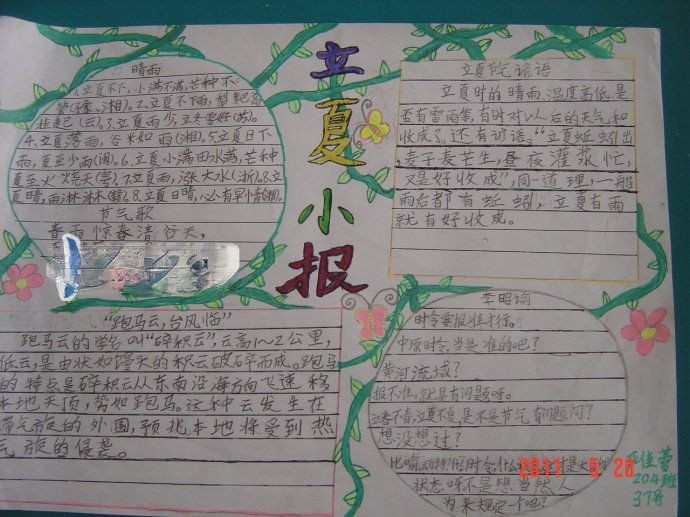 立夏小报
晴雨
1.立夏不下,小满不满,芒种不
管(豫、湘)。2.立夏不下雨,犁耙高
挂起(云)。3.立夏雨少,立冬雪好(皖)。
4.立夏落雨,谷米如雨(湘)。5.立夏日下
雨,夏至少雨(闽)。6.立夏小满田水满,芒种
夏至火烧天(粤)。7.立夏雨,涨大水(浙)。8.立
夏晴,雨淋淋
夏日晴,必有旱情
节气歌
春雨惊春清谷天,
立夏节气谚语
立夏时的晴雨、温度高低、是
否有雷雨等,有时对以后的天气和
收成了,还有谚语。"立夏蚯蚓出
,麦子麦芒生,昼夜灌浆忙,
又是好收成",同一道理,一般
雨后都有蚯蚓,立夏有雨
就有好收成。
"跑马云,台风临"
跑马云的学名叫"碎积云",云高1~2公里,
低云,是由状如馒头的积云破碎而成。跑马
的特点是碎积云从东南沿海方向飞速移
本地天顶,势如跑马。这种云发生在
带气旋的外围,预兆本地将受到热
气旋的侵袭。
李昭瑜
时令要报准才行。
中原时令,当是准的吧?
黄河流域?
报不准,就是有问题呀。
立春不春,立夏不夏,是不是节气有问题问?
想没想过?
比喻,动物
状态呀不是想当然,人
为来规定一个吧?
2011 5 20
佳蕾
204班
37号